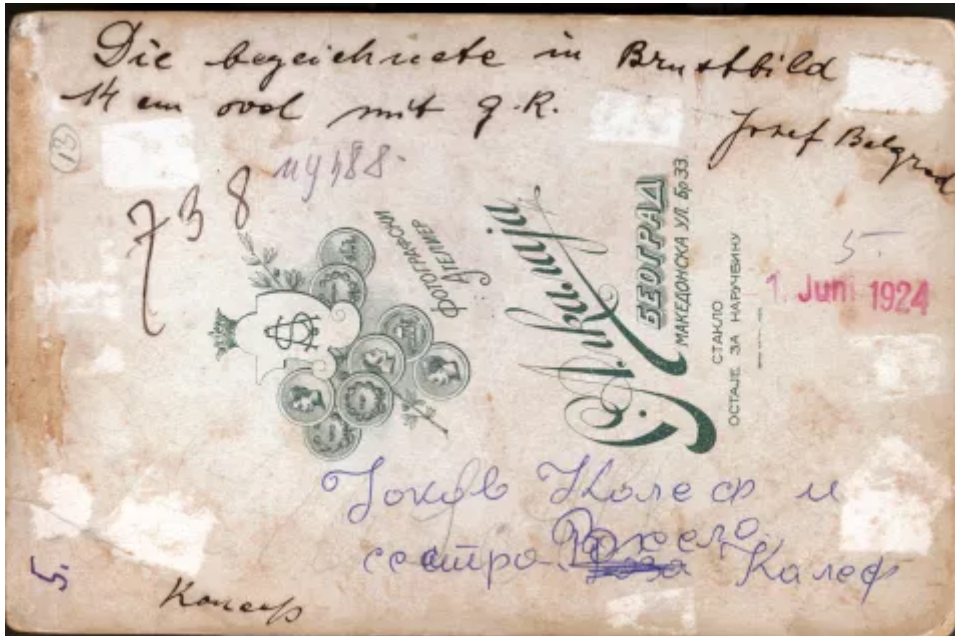 Die bezeichnete in Brustbild
14 cm oval mit g. R.
Josef Belgrad
13
738
ФОТОГРАФСКИ
АТЕЛИЕР
БЕОГРАД
МАКЕДОНСКА УЛ. Бр 33.
СТАКЛО
ОСТАЈЕ ЗА НАРУЧБИНУ
5
1. Juni 1924
Калеф и
Рахела
сестра Роза Калеф
5.
Калеф